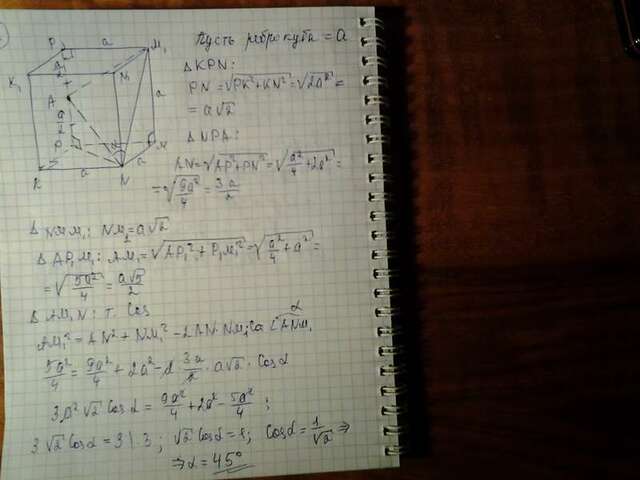 Пусть ребро куба = a
P₁ a M₁
K₁ N₁
a/2
A a
a/2
P M
K a N a
Δ KPN:
PN = √PK²+KN² = √2a² =
= a√2
Δ NPA:
AN = √AP²+PN² = √a²/4+2a² =
= √9a²/4 = 3a/2
Δ NMM₁: NM₁ = a√2
Δ AP₁M₁: AM₁ = √AP₁²+P₁M₁² = √a²/4+a² =
= √5a²/4 = a√5/2
Δ AM₁N: т. Cos
AM₁² = AN² + NM₁² - 2AN·NM₁ Cos ∠ANM₁ α
5a²/4 = 9a²/4 + 2a² - 2·3a/2·a√2·Cosα
3a²√2 Cosα = 9a²/4 + 2a² - 5a²/4 ;
3√2 Cosα = 3 | :3 ; √2 Cosα = 1; Cosα = 1/√2 ⇒
⇒ α = 45°